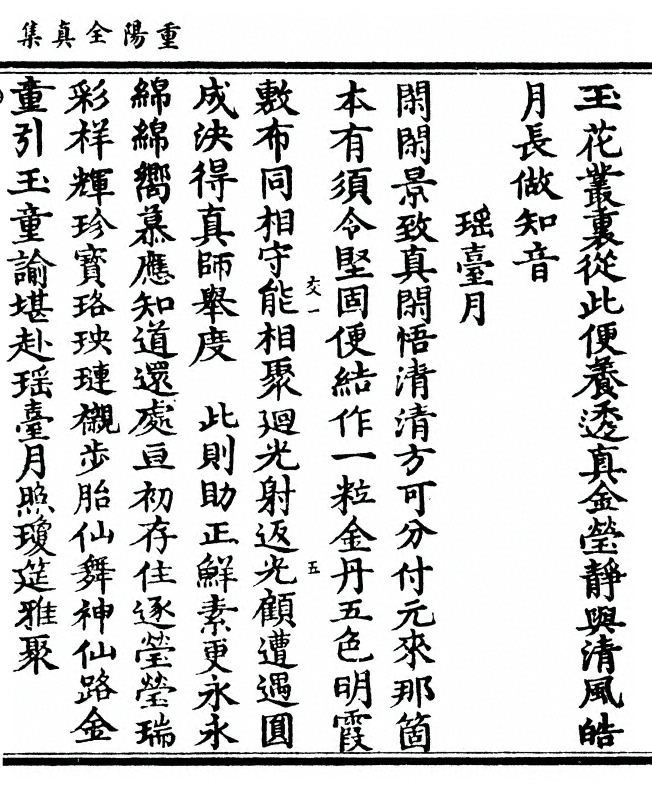 重陽全真集
玉花叢裏從此便養透真金瑩靜與清風皓
月長做知音
瑶臺月
閑閑景致真閑悟清清方可分付元來那箇
本有須令堅固便結作一粒金丹五色明霞
交一
五
敷布同相守能相聚廻光射返光顧遭遇圓
成決得真師舉度　此則助正鮮素更永永
綿綿嚮慕應知道還處亘初存住逐瑩瑩瑞
彩祥輝珍寳珞玦璉襯步胎仙舞神仙路金
童引玉童諭堪赴瑶臺月照瓊筵雅聚